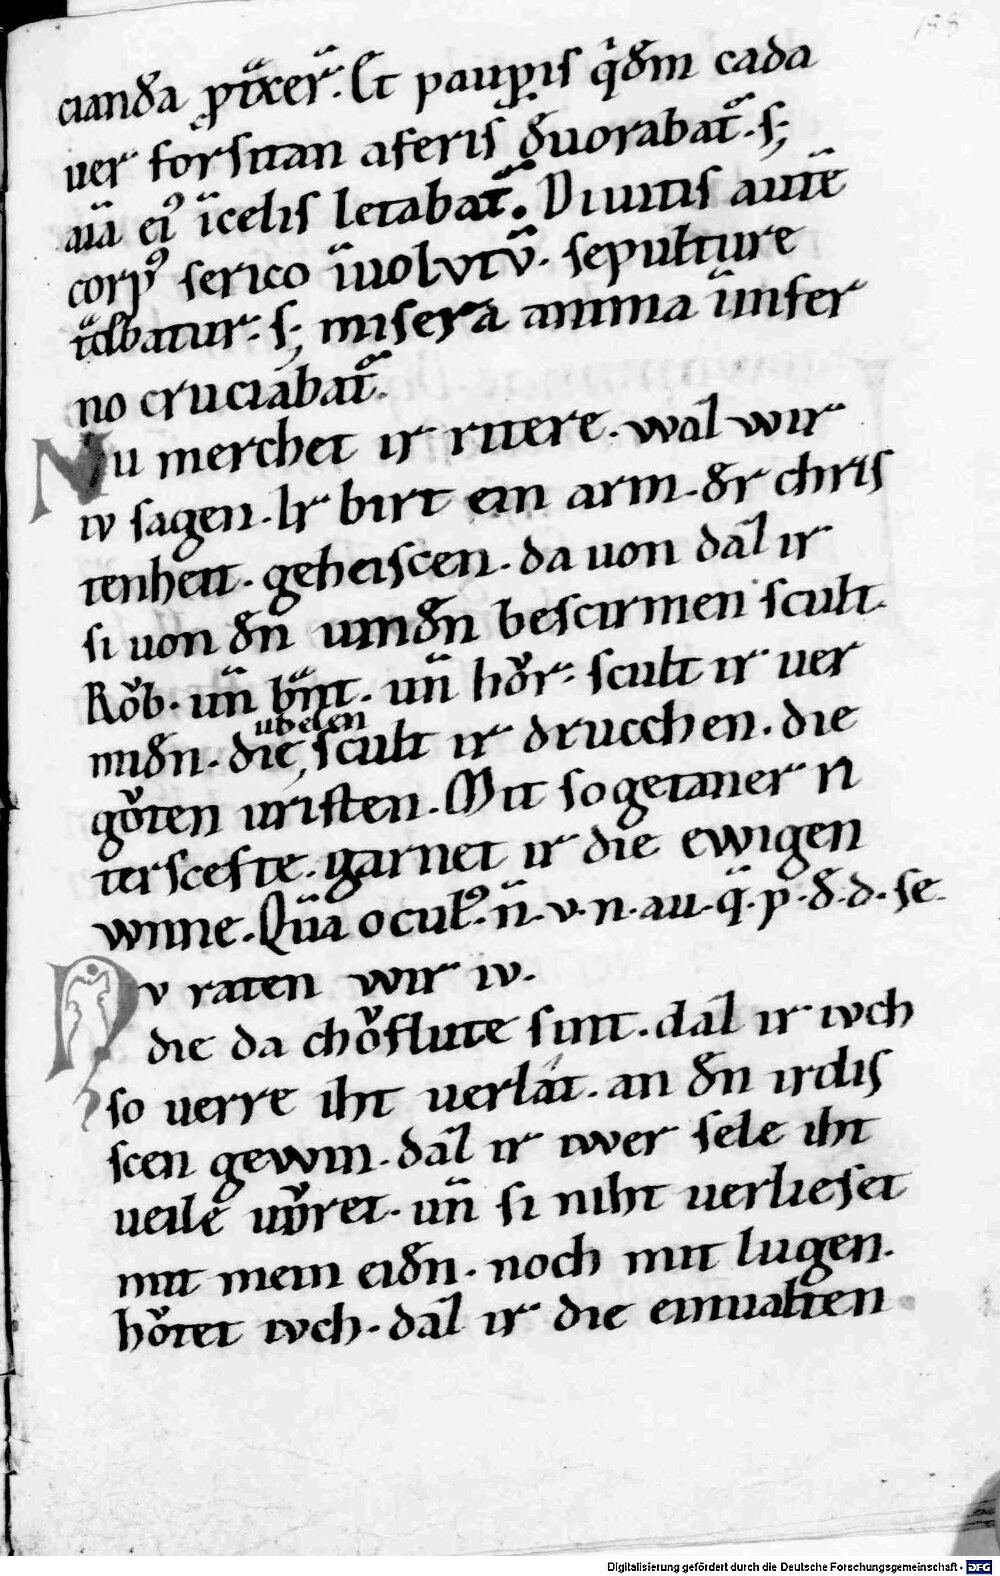 158
cianđa ptı̈xer̄. Et paup̱ıſ q̄đm cada
uer forſıtan aferıſ đuorabat̄. ſ;
aı̄a eı9 ı̄celıſ letabat̄. Diuıtıſ aute̅
corp9 serıco ı̄uolvtv̄. sepulture
t̄dbatur. ſ; mıſera anıma ı̄ınfer
no crucıabat̄.
Nu merchet ır rıtere. waꝫ wır
ıv sagen. Ir bırt eın arm. đr chrıſ
tenheıt. geheıſcen. da uon daꝫ ır
ſı uon đn unıđn beſcırmen ſcult.
Roͮb. un̄ bn̄t. un̄ hoͮr. ſcult ır uer
mıđn. dıe ubelen ſcult ır drucchen. dıe
goͮten urıſten. Mıt ſogetaner rı
terſcefte. garnet ır dıe ewıgen
wnne. Qu̅a ocul9. n̄. v. n. au. q̄. p. đ. d. ſe.
Nv raten wır ıv.
dıe da choͮflute ſınt. daꝫ ır ıvch
ſo uerre ıht uerlát. an đn ırdıſ
ſcen gewın. daꝫ ır ıwer ſele ıht
ueıle vv̄ret. un̄ ſı nıht uerlıeſet
mıt meın eıđn. noch mıt lugen.
hoͮtet ıvch. daꝫ ır dıe eınualten
Digitalisierung gefördert durch die Deutsche Forschungsgemeinschaft - DFG